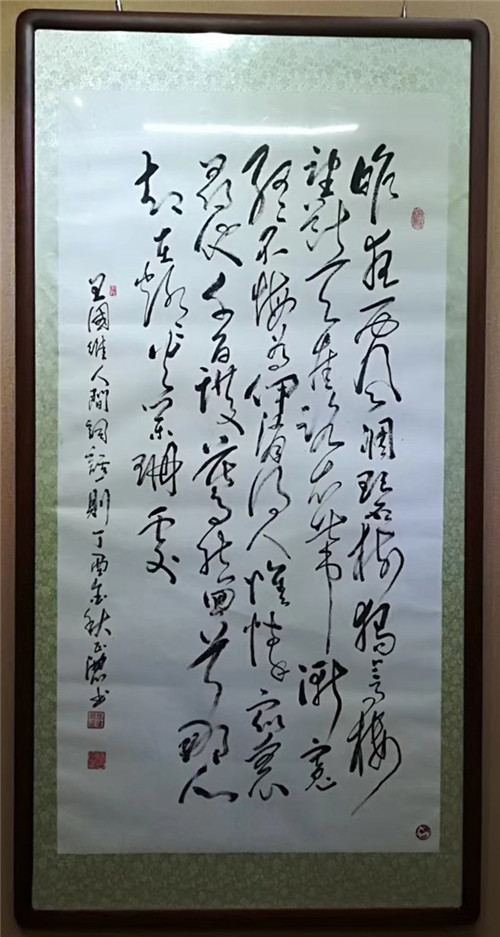 昨夜西风凋碧树獨上高楼
望断天涯路衣带渐宽
终不悔为伊消得人憔悴众里
寻他千百度蓦然回首那人
却在灯火阑珊处
王國維人間詞話一則丁酉金秋书